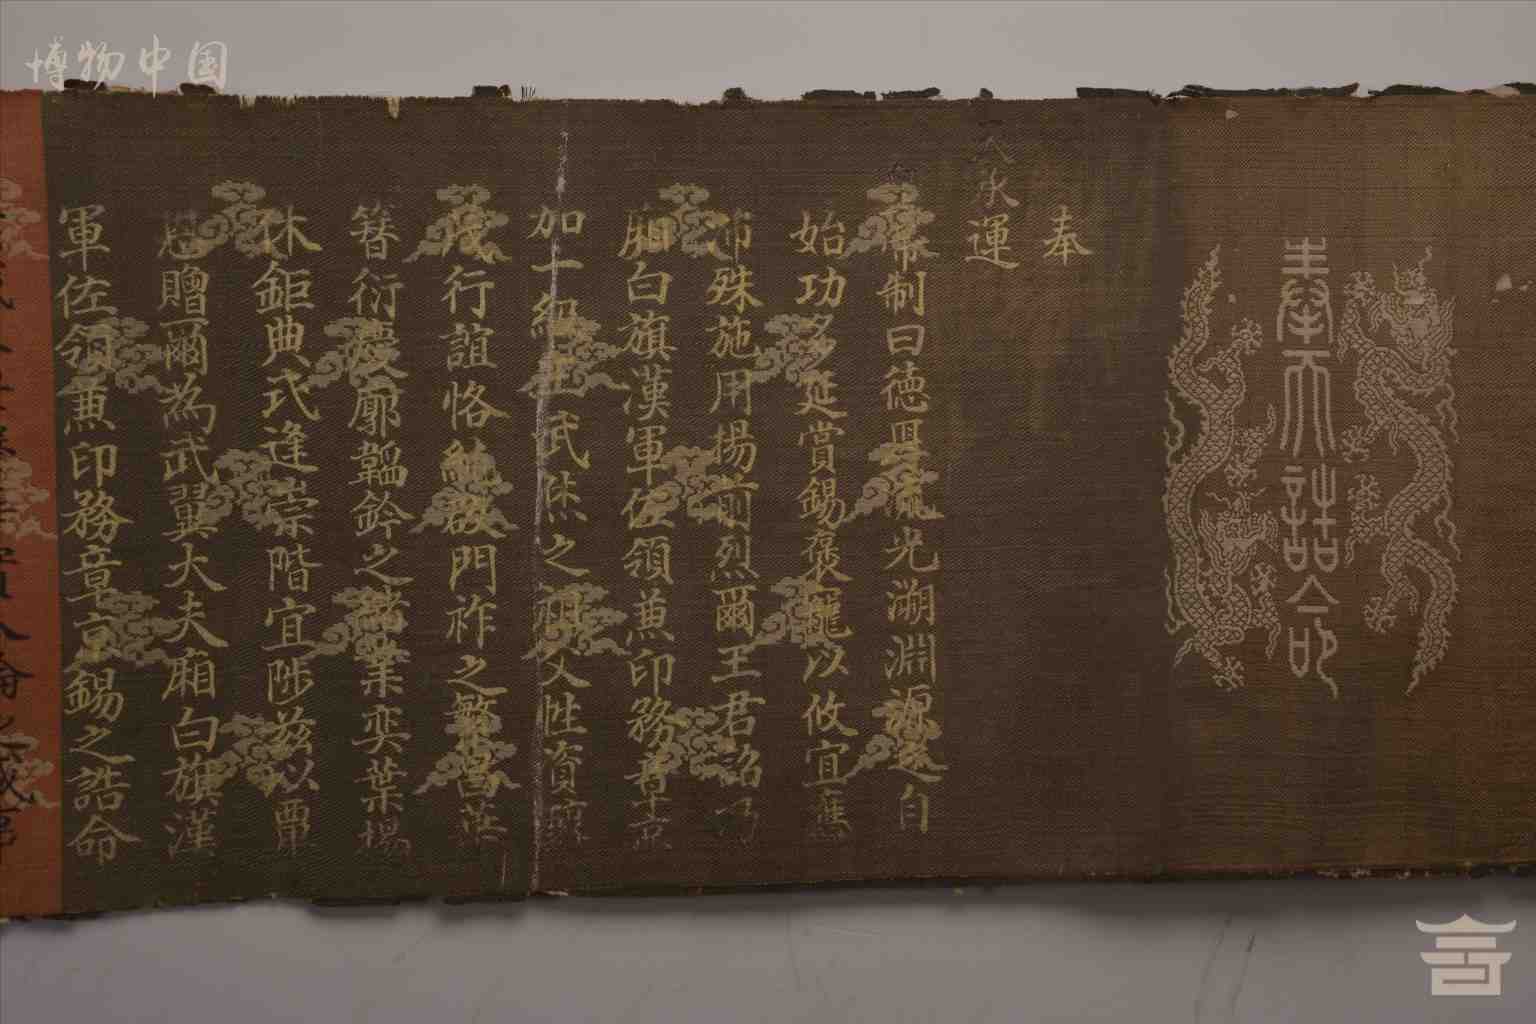 博物中国
奉天誥命
奉
天承運
皇帝制曰德厚流光溯淵源之自
始功多延賞錫褒寵以攸宜應
沛殊施用揚前烈爾王君詔乃
廂白旗漢軍佐領兼印務章京
加一級王武烋之祖父性資
茂行誼恪純啟門祚之繁昌
簪衍慶廓韜鈐之緒業奕葉揚
休鉅典式逢崇階宜陟茲以覃
恩贈爾為武翼大夫廂白旗漢
軍佐領兼印務章京錫之誥命